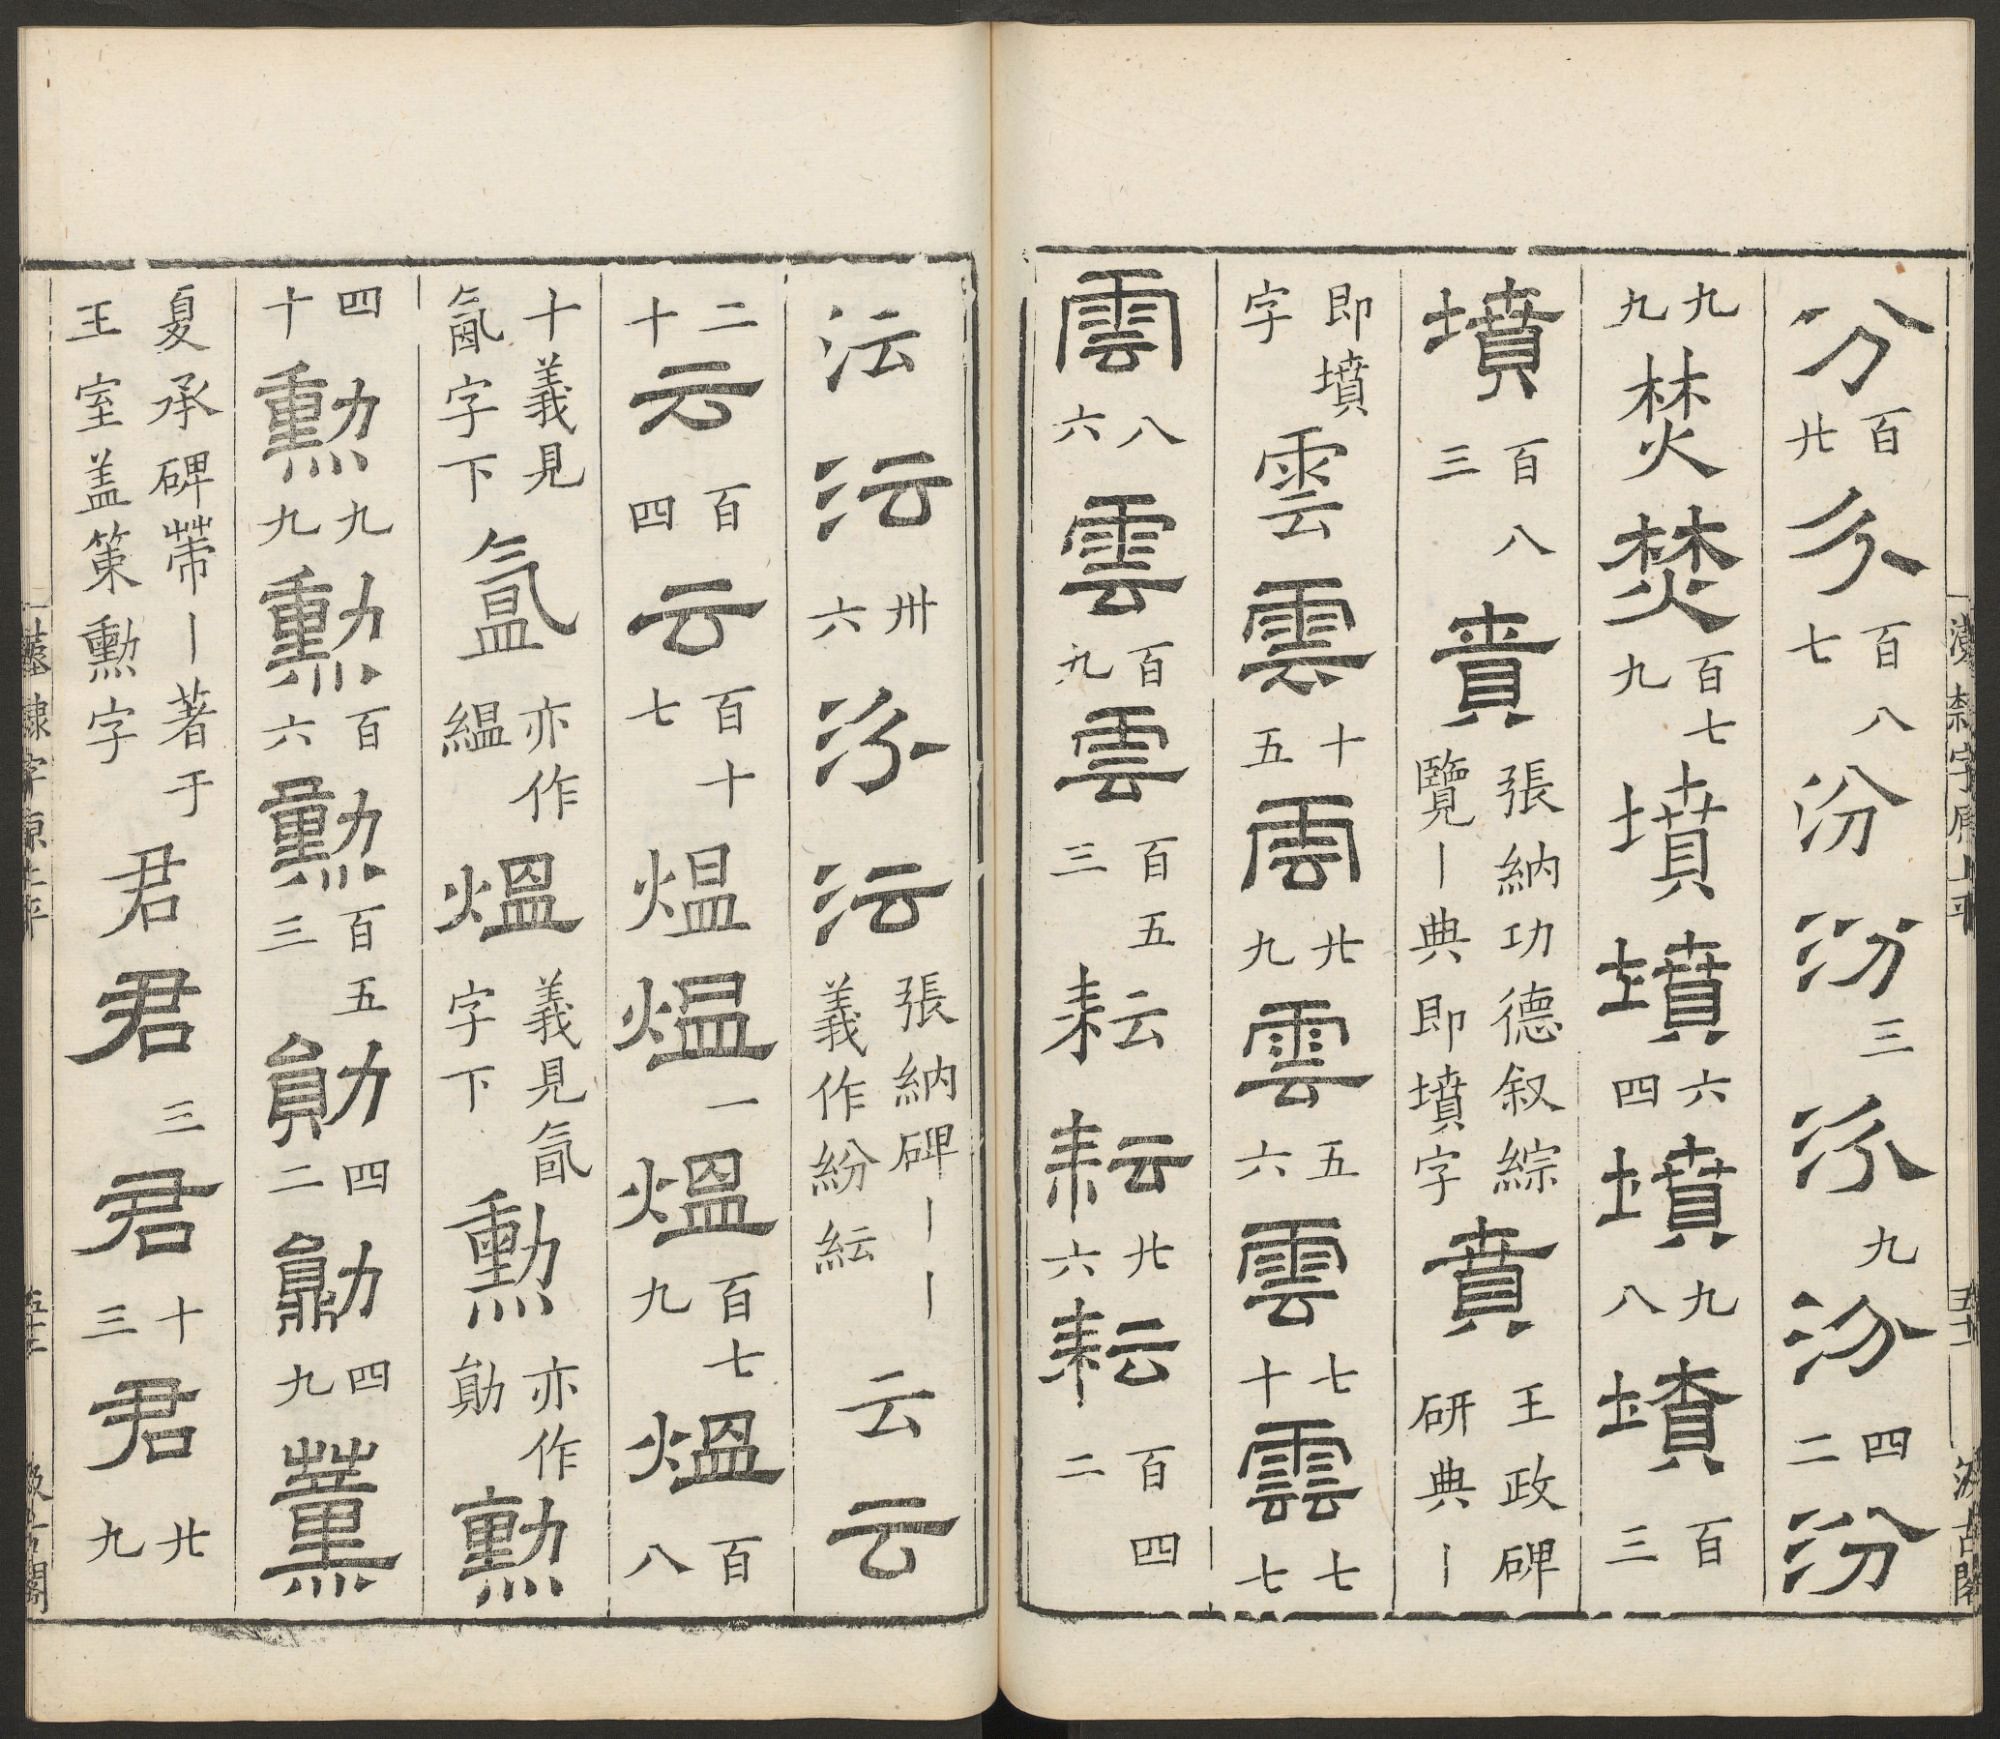 分百廿分百八七汾汾三汾九汾四二汾
九九焚焚百七九墳墳六四墳九八墳百三
墳百八三賁張納功德叙綜覽丨典即墳字賁王政碑研典丨
即墳字雲雲十五雲廿九雲五六雲七十雲七七
雲八六雲百九雲百五三耘耘廿六耘百四二
沄沄卅六沄沄張納碑丨丨義作紛紜云云
二十云百四云百十七煴熅一熅百七九熅百八
十義見氤字下氳亦作緼熅義見氤字下勳亦作勛勳
四十勳九九勳百六勳百五三勛四二勛四九薰
夏承碑帶丨著于王室盖策勳字君君三君十三君廿九
漢隸字原上平
五十二
汲古閣